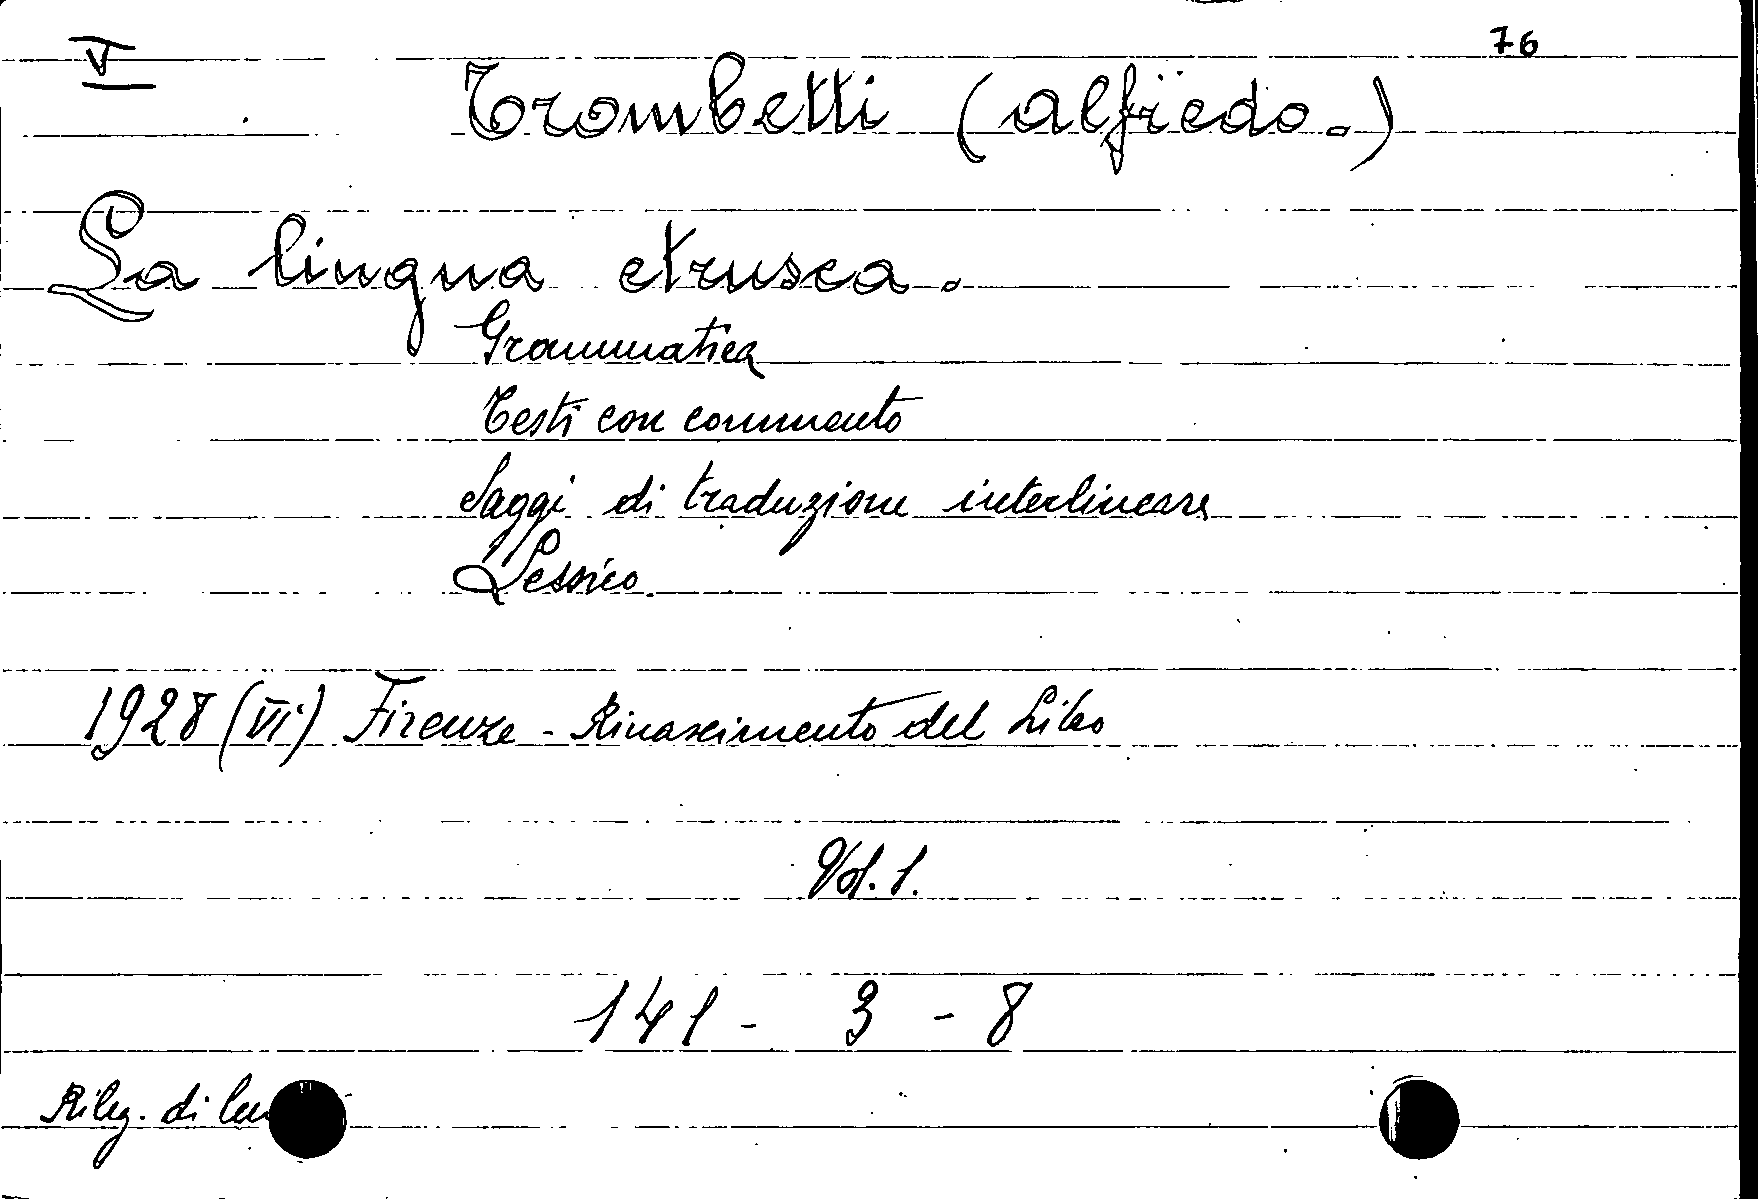 V 76
Trombetti (Alfredo.)
La lingua etrusca.
Grammatica
Testi con commento
Saggi di traduzione interlineare
Lessico.
1928 (VI) Firenze - Rinascimento del Libro
Vol. 1.
141 - 3 - 8
Rileg. di